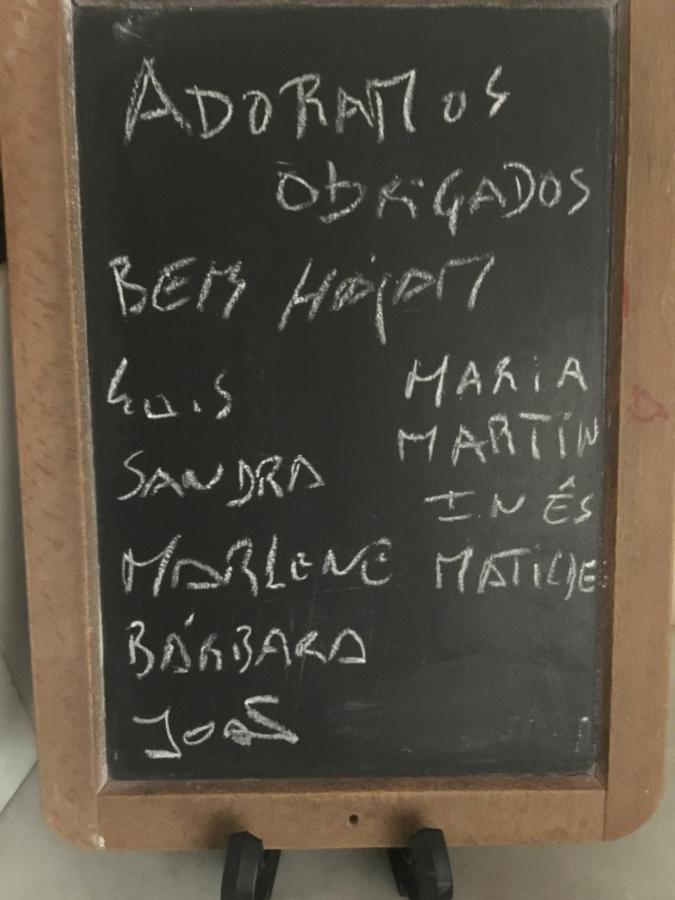 ADORAMOS
OBRIGADOS
BEM HÁJAM
LUIS
SANDRA
MARLENE
BÁRBARA
JOÃO
MARIA
MARTIN
INÊS
MATILDE